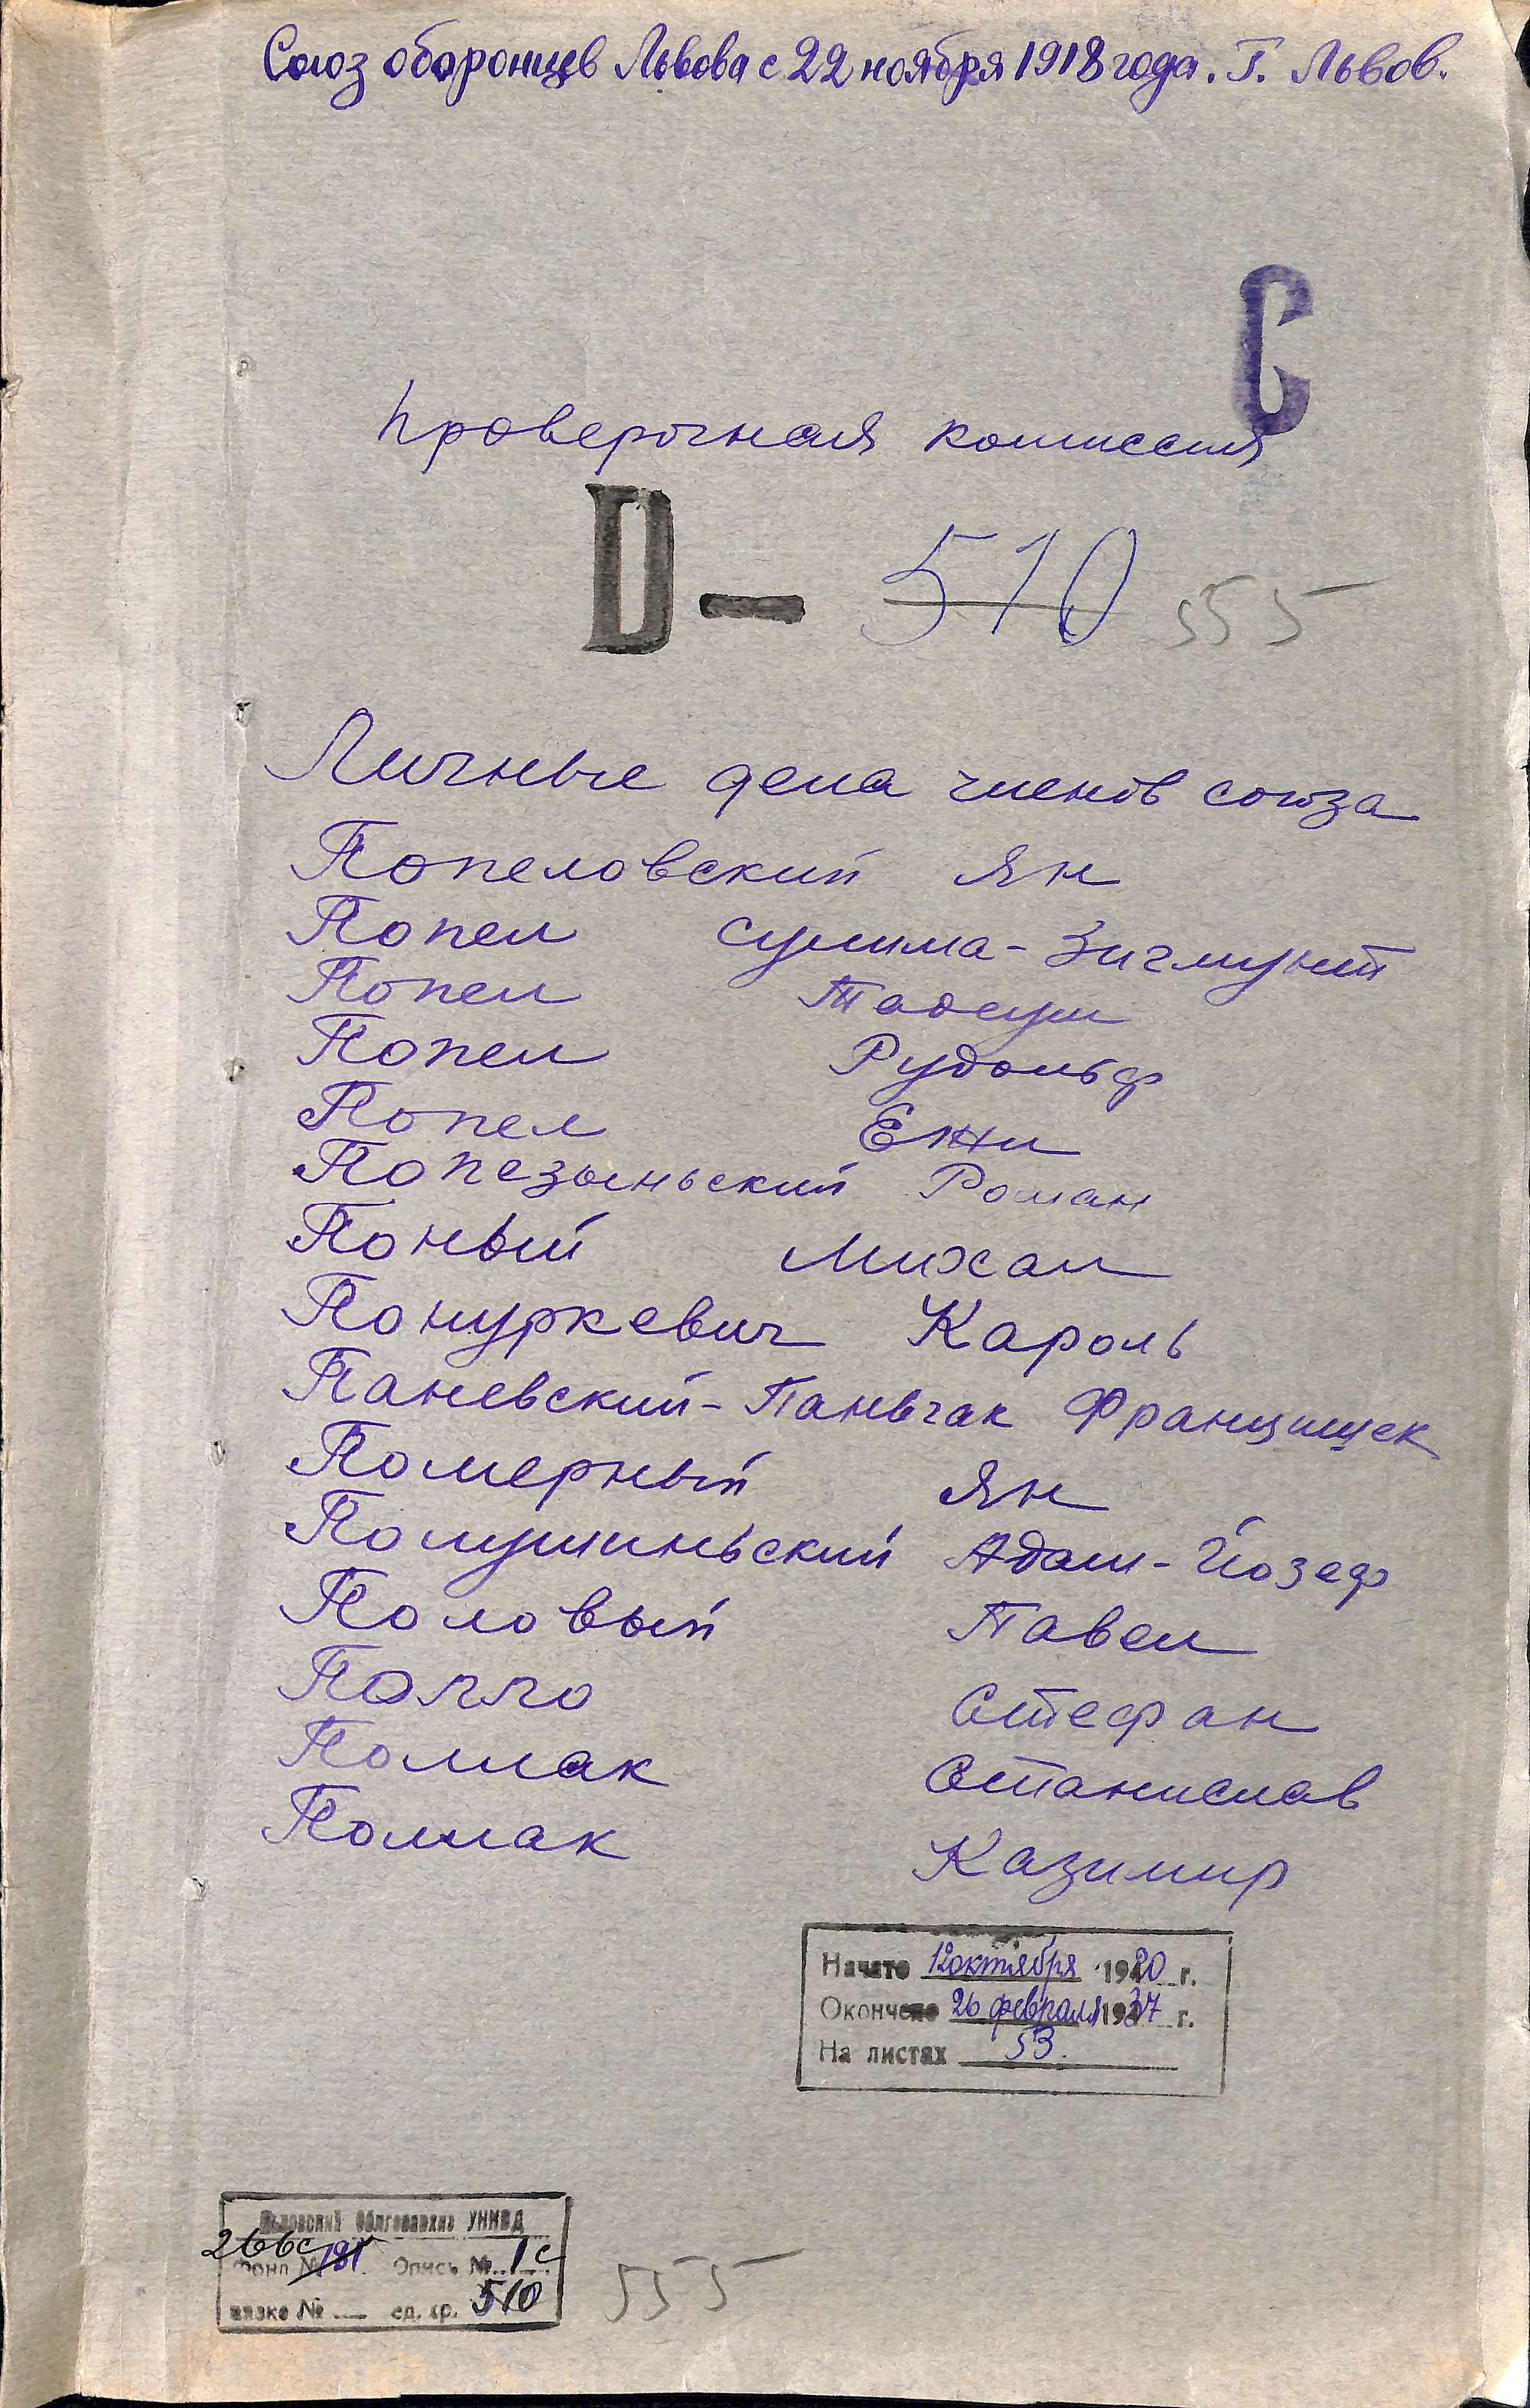 Союз оборонцев Львова с 22 ноября 1918 года. Г. Львов.
С
Проверочная комиссия
D — 510 555
Личные дела членов союза
Попеловский Ян
Попел Сулима-Зигмунт
Попел Тадеуш
Попел Рудольф
Попел Ежи
Попезыньский Роман
Поный Михал
Понуркевич Кароль
Паневский-Паньчак Францищек
Померный Ян
Помушиньский Адам-Йозеф
Половый Павел
Полло Стефан
Полиак Станислав
Полиак Казимир
Начато 12 октября 1920 г.
Окончено 26 февраля 1937 г.
На листах 53.
Львовский Облгосархив УНКВД
266с
Фонд № 181. Опись № 1с
вязке № — ед. хр. 510
555